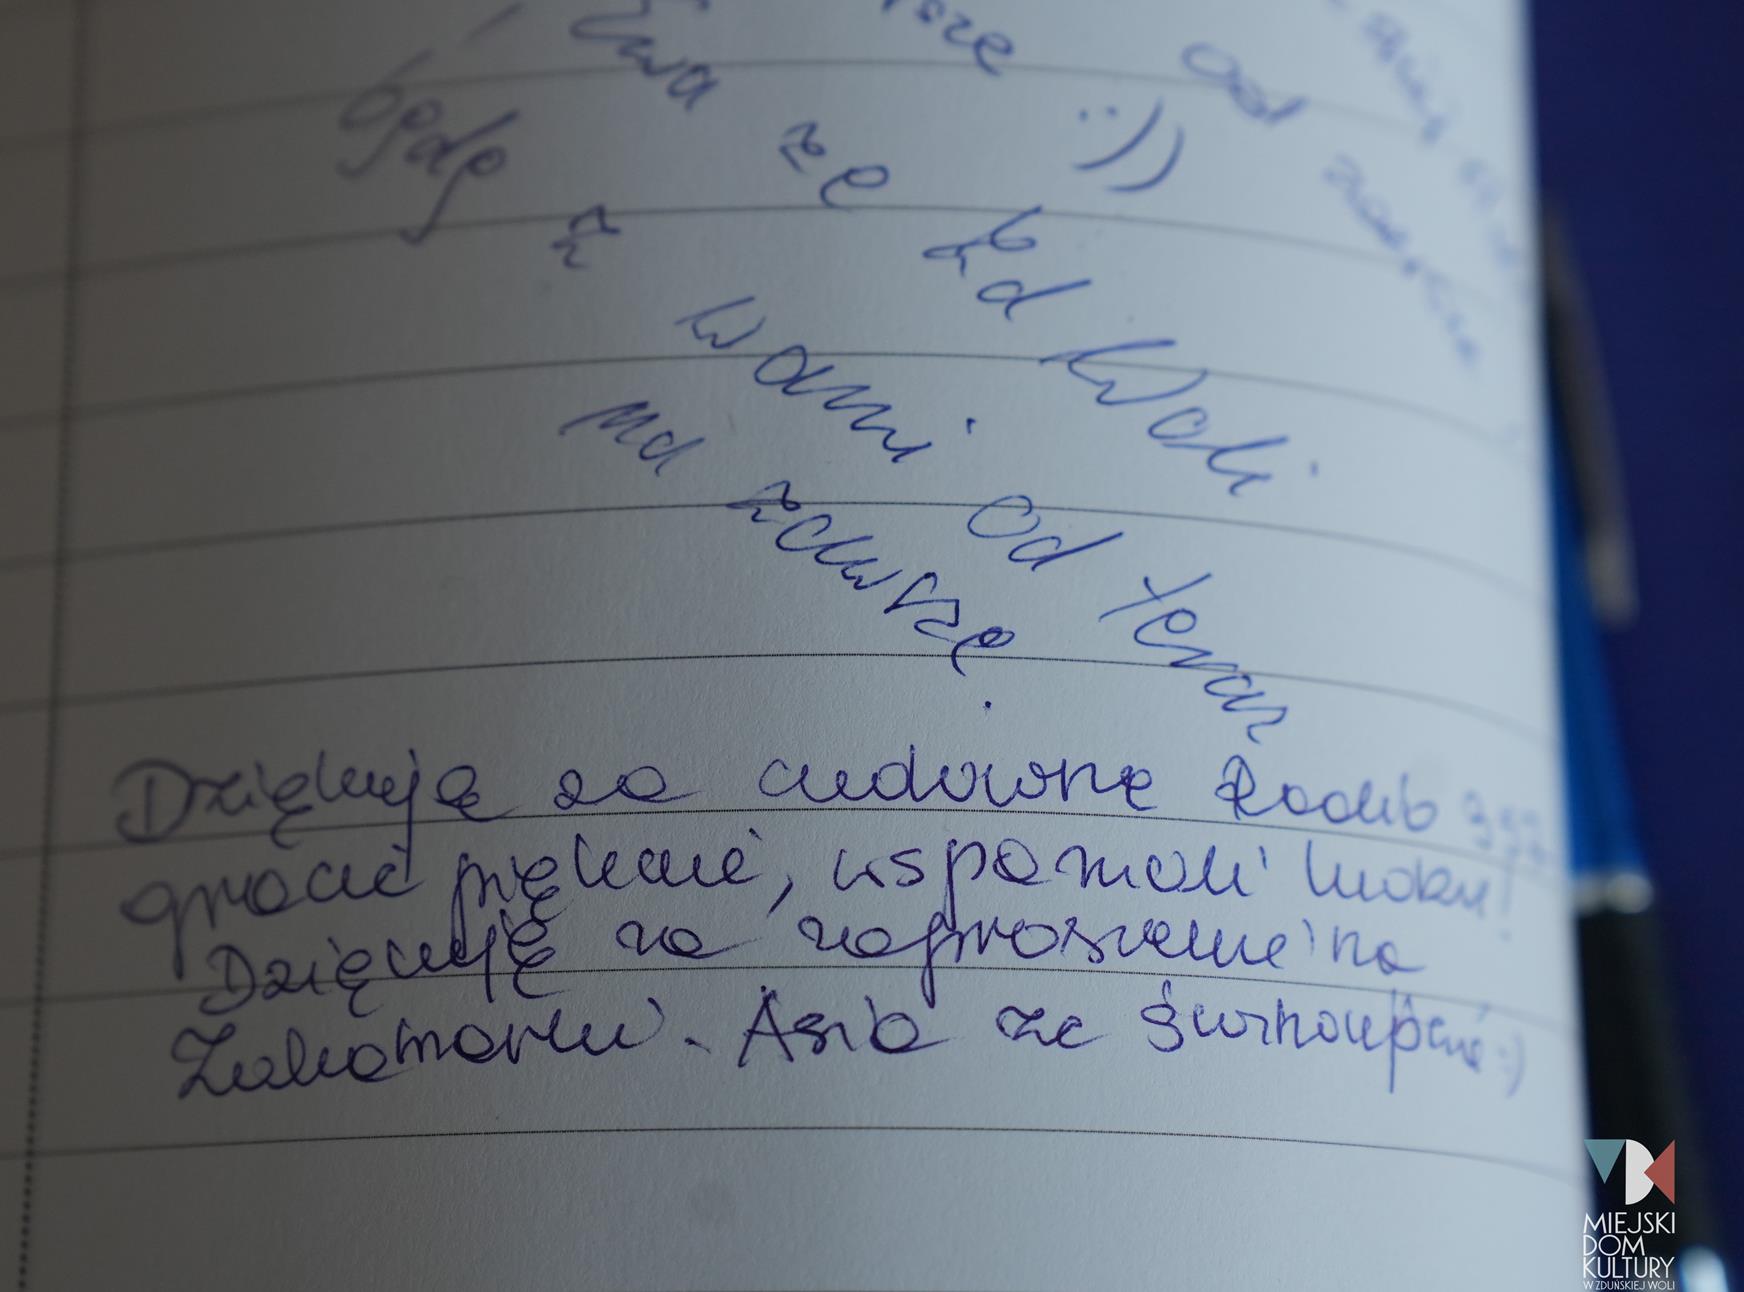 :))
od
Ewa ze Zd Woli
będę z Wami od teraz
na zawsze.
Dziękuję za cudowne Radio 357
gracie pięknie, wspaniali ludzie!
Dziękuję za zaproszenie na
Asia ze :)
MIEJSKI
DOM
KULTURY
W ZDUŃSKIEJ WOLI